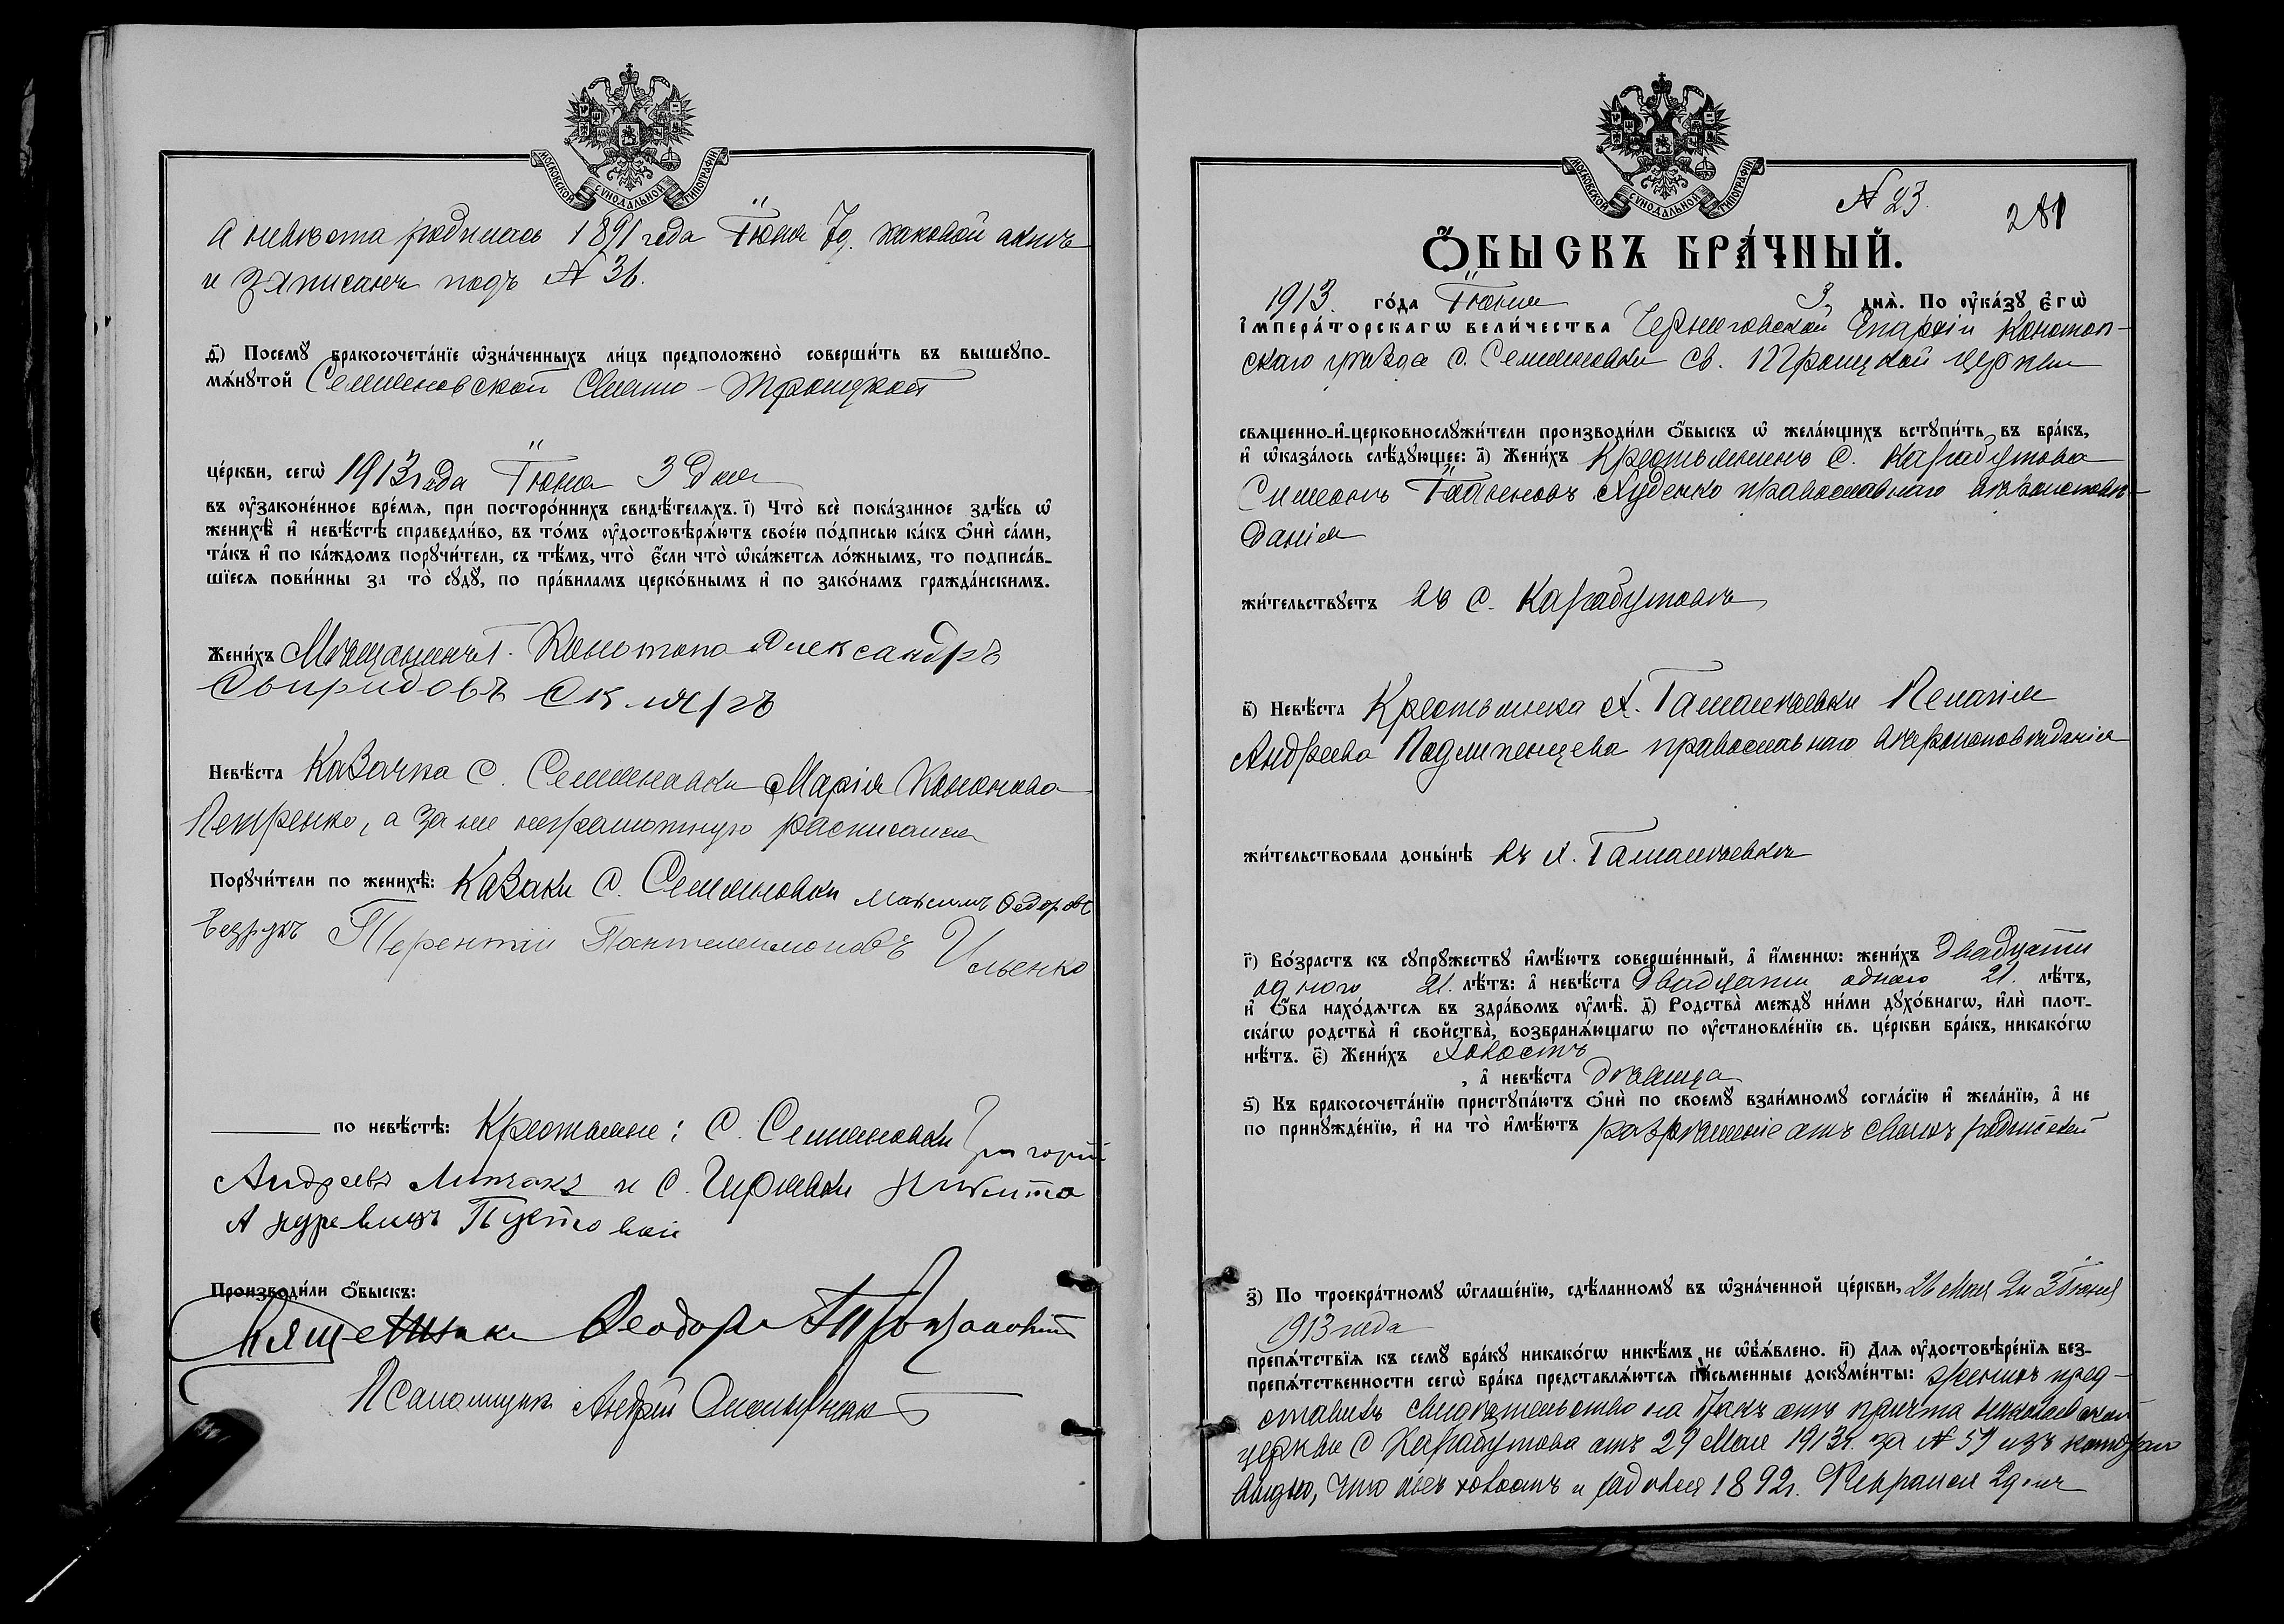 МОСКОВСКОЙ СѴНОДАЛЬНОЙ ТИПОГРАФІИ
а невѣста родилась 1891 года Іюня 7д. каковой актъ
и записанъ подъ № 36.
д҃) Посемꙋ̀ бракосочета́нїе ѡ҆зна́ченныхъ ли́цъ предположено̀ соверши́ть въ вышеꙋпо-
мѧ́нꙋтой Семяновской Свято-Троицкой
це́ркви, сегѡ̀ 1913 года Іюня 3 дня
въ ᲂу҆законе́нное вре́мѧ, при посторо́ннихъ свидѣ́телѧхъ. і҃) Что̀ всѐ пока́занное здѣ́сь ѡ҆
женихѣ̀ и҆ невѣ́стѣ справедли́во, въ то́мъ ᲂу҆достовѣрѧ́ютъ свое́ю по́дписью ка́къ ѻ҆нѝ са́ми,
та́къ и҆ по ка́ждомъ порꙋчи́тели, съ тѣ́мъ, что̀ є҆́сли что̀ ѡ҆ка́жетсѧ ло́жнымъ, то подписа́в-
шїесѧ пови́нны за то̀ сꙋдꙋ̀, по пра́виламъ церко́внымъ и҆ по зако́намъ гражда́нскимъ.
Жени́хъ Мѣщанинъ г. Конотопа Александръ
Свиридовъ Скляръ
Невѣ́ста Казачка с. Семяновки Марія Кононова
Петренко, а за нее неграмотную расписался
Порꙋчи́тели по женихѣ̀: Казаки с. Семяновки Максимъ Федоровъ
Безрукъ Терентій Пантелеимоновъ Ильенко
по невѣ́стѣ: Крестьяне: с. Семяновки Григорій
Андреевъ и с. Гирявки Никита
Андреевичъ Пустовой
Производи́ли ѻ҆́быскъ:
Священникъ Ѳеодоръ
Псаломщикъ Андрей
МОСКОВСКОЙ СѴНОДАЛЬНОЙ ТИПОГРАФІИ
№ 23.
281
Ѻ҆́БЫСКЪ БРА́ЧНЫЙ.
1913. го́да Іюня 3, днѧ̀. По ᲂу҆ка́зꙋ Є҆гѡ̀
І҆мпера́торскагѡ вели́чества Черниговской Епархіи Конотоп-
скаго уѣзда с. Семяновки Св. Троицкой церкви
свѧщенно-и҆-церковнослꙋжи́тели производи́ли ѻ҆́быскъ ѡ҆ жела́ющихъ встꙋпи́ть въ бра́къ,
и҆ ѡ҆каза́лось слѣ́дꙋющее: а҃) Жени́хъ Крестьянинъ с. Карабутова
Симеонъ Худенко православнаго вѣроисповѣ-
данія
жи́тельствꙋетъ въ с. Карабутовѣ
в҃) Невѣ́ста Крестьянка х. Гамалѣевки Пелагія
Андреева Подлипенцева православнаго вѣроисповѣданія
жи́тельствовала донынѣ̀ въ х. Гамалѣевкѣ
г҃) Во́зрастъ къ сꙋпрꙋ́жествꙋ и҆мѣ́ютъ соверше́нный, а҆ и҆́меннѡ: жени́хъ двадцати
одного 21. лѣ́тъ: а҆ невѣ́ста двадцати одного 21. лѣ́тъ,
и҆ ѻ҆́ба нахо́дѧтсѧ въ здра́вомъ ᲂу҆мѣ̀. д҃) Родства̀ междꙋ̀ ни́ми дꙋхо́внагѡ, и҆лѝ плот-
ска́гѡ родства̀ и҆ свойства̀, возбранѧ́ющагѡ по ᲂу҆становле́нїю св. це́ркви бра́къ, никако́гѡ
нѣ́тъ. є҃) Жени́хъ холостъ
, а҆ невѣ́ста дѣвица
ѕ҃) Къ бракосочета́нїю пристꙋпа́ютъ ѻ҆нѝ по своемꙋ̀ взаи́мномꙋ согла́сїю и҆ жела́нїю, а҆ не
по принꙋжде́нїю, и҆ на то̀ и҆мѣ́ютъ разрѣшеніе отъ своихъ родителей
з҃) По троекра́тномꙋ ѡ҆глаше́нїю, сдѣ́ланномꙋ въ ѡ҆зна́ченной це́ркви, 26 Мая 2 и 3 Іюня
1913 года
препѧ́тствїѧ къ семꙋ̀ бра́кꙋ никако́гѡ никѣ́мъ не ѡ҆б̾ѧ́влено. и҃) Длѧ ᲂу҆достовѣре́нїѧ без-
препѧ́тственности сегѡ̀ бра́ка представлѧ́ютсѧ пи́сьменные докꙋме́нты: женихъ пред-
ставилъ свидѣтельство на бракъ отъ причта Николаевской
церкви с Карабутова отъ 29 Мая 1913 г. за № 59 изъ котораго
видно, что онъ холостъ и родился 1892 г. Февраля 2 дня